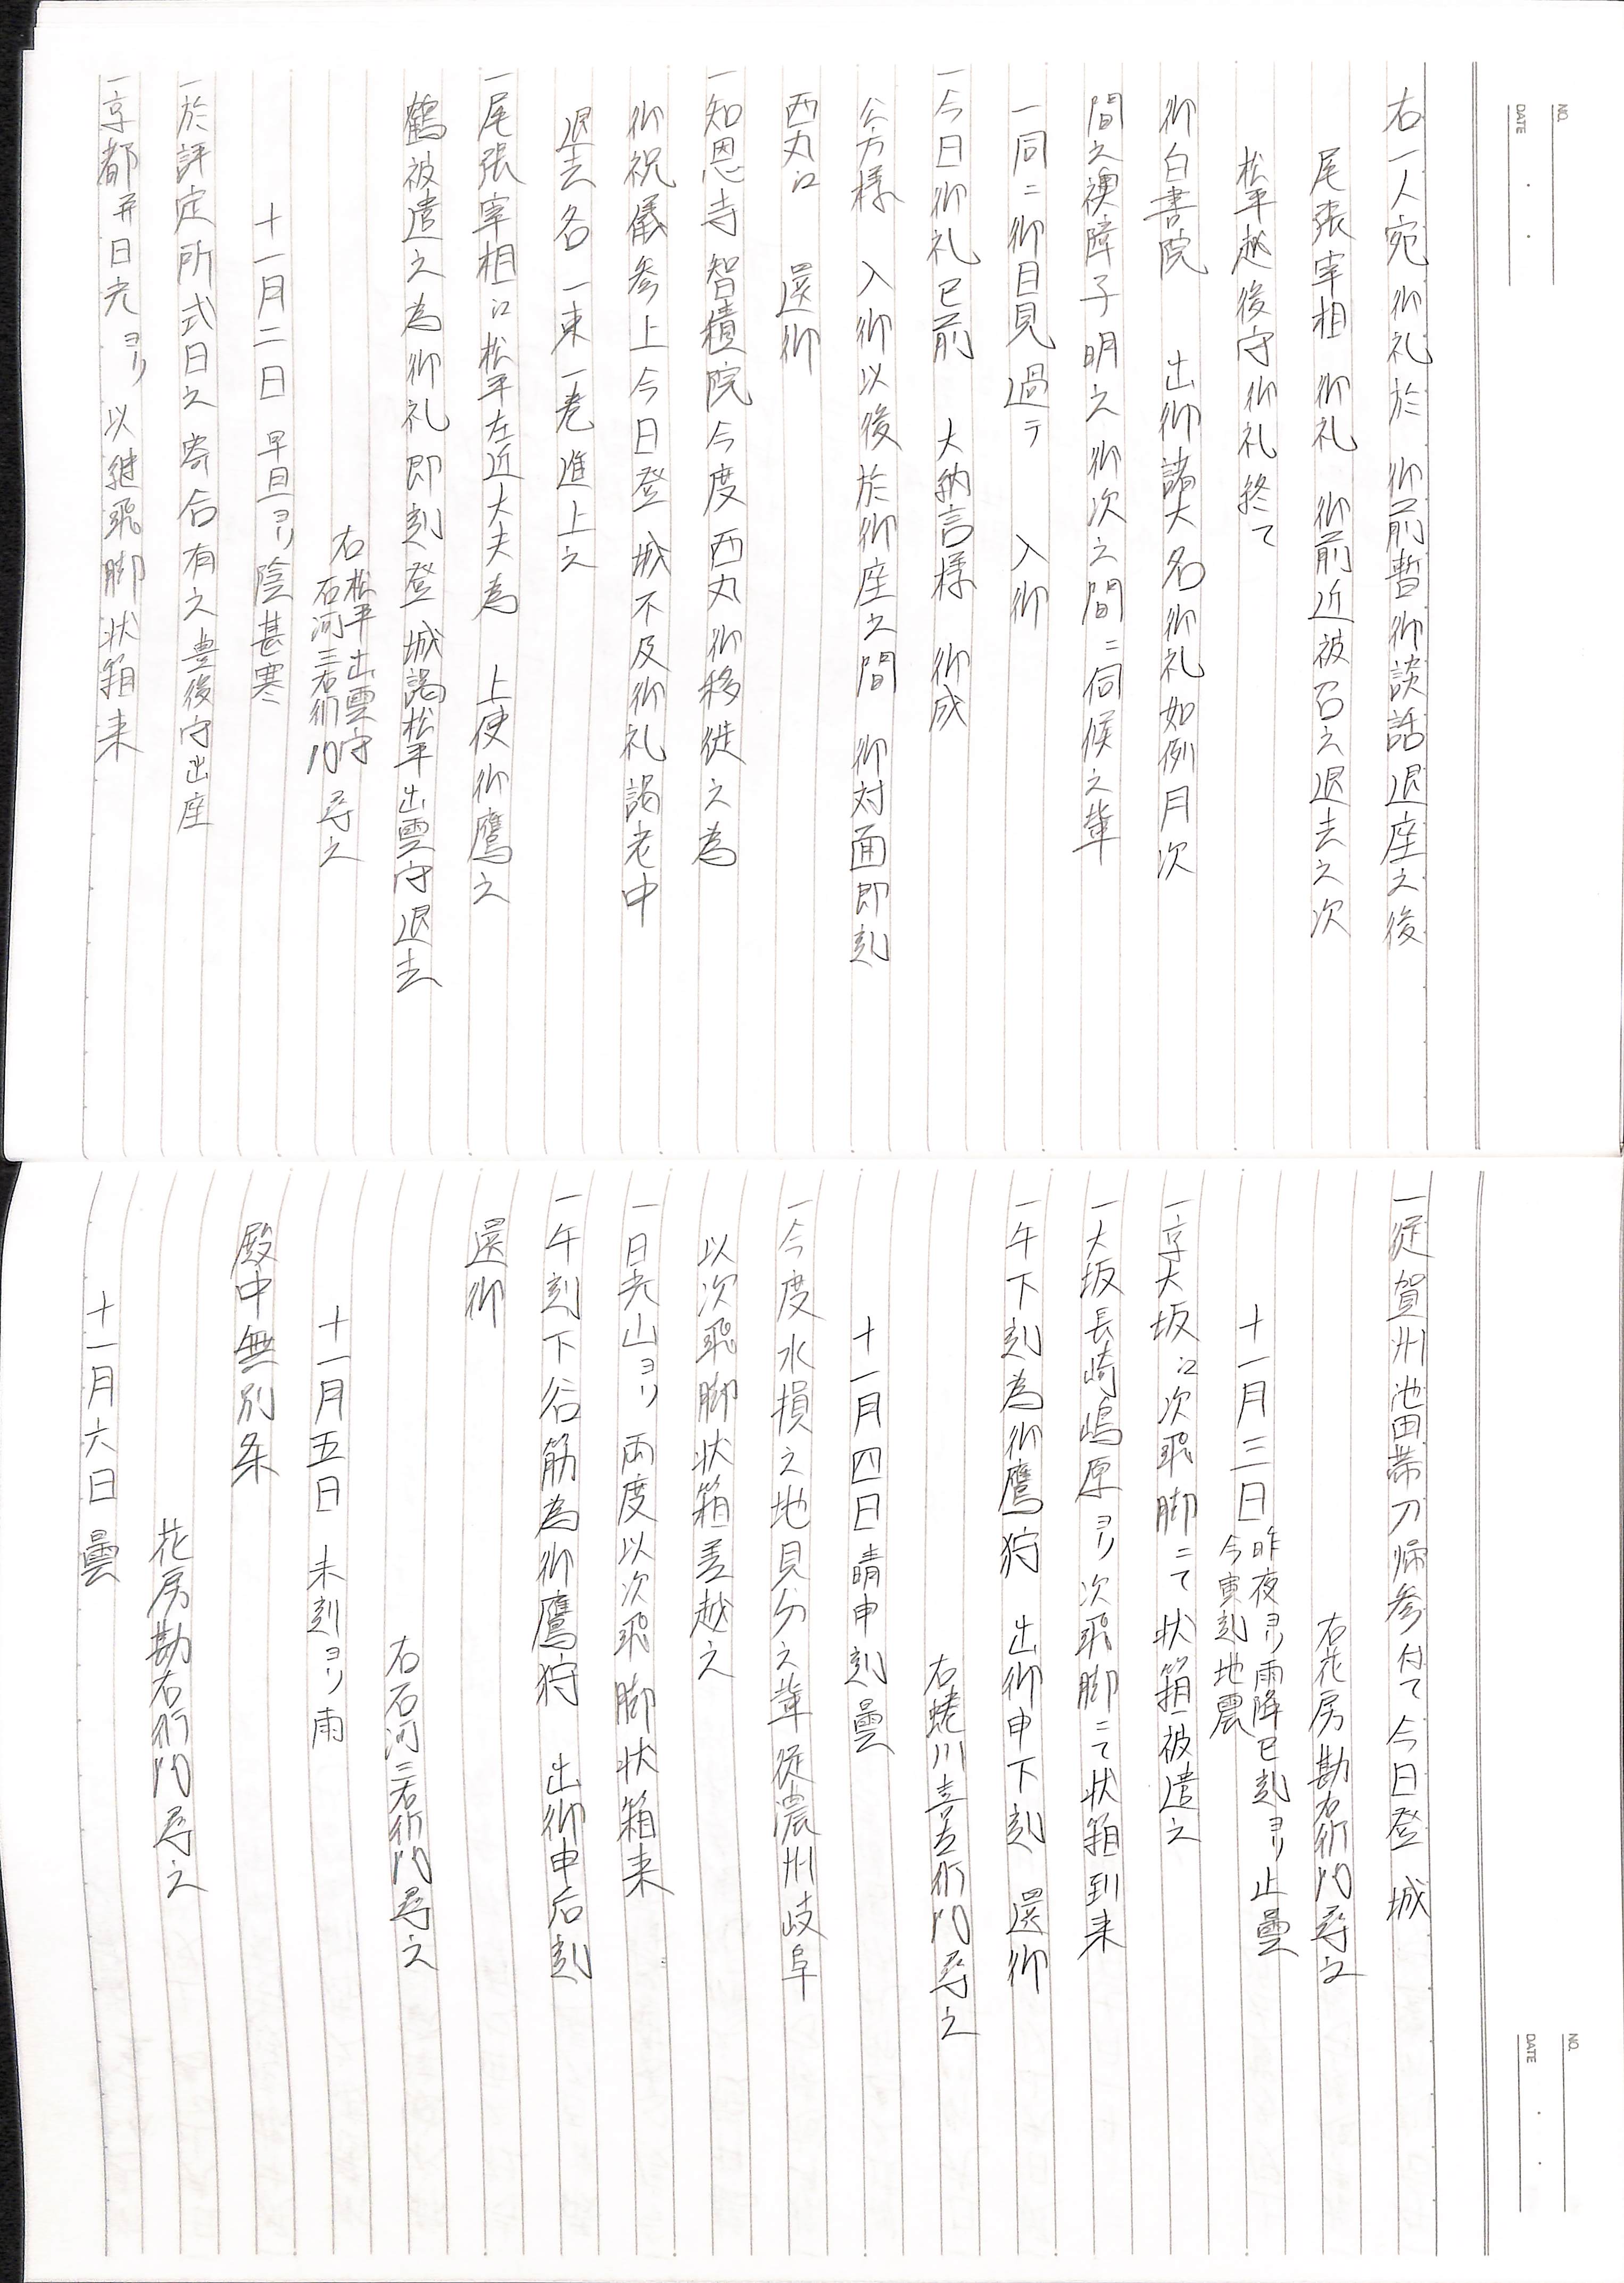 NO.
DATE
右一人宛御礼於 御前暫御談話退座之後
尾張宰相 御礼 御前近被召之退去之次
松平越後守御礼終て
御白書院 出御諸大名御礼如例月次
間之襖障子明之御次之間ニ伺候之輩
一同ニ御目見過テ 入御
一今日御礼已前 大納言様 御成
公方様 入御以後於御座之間 御対面即刻
西丸江 還御
一知恩寺智積院今度西丸御移徙之為
御祝儀参上今日登 城不及御礼謁老中
退去各一束一巻進上之
一尾張宰相江松平左近大夫為 上使御鷹之
鶴被遣之為御礼即刻登 城謁松平出雲守退去
右松平出雲守
石河三右衛門 尋之
十一月二日 早旦ヨリ陰甚寒
一於評定所式日之寄合有之豊後守出座
一京都并日光ヨリ 以継飛脚状箱来
NO.
DATE
一従賀州池田帯刀帰参付て今日登 城
右花房勘右衛門尋之
十一月三日 昨夜ヨリ雨降巳刻ヨリ止曇
今寅刻地震
一京大坂江次飛脚ニて状箱被遣之
一大坂長崎嶋原ヨリ次飛脚ニて状箱到来
一午下刻為御鷹狩 出御申下刻 還御
右蜷川喜左衛門尋之
十一月四日晴申刻曇
一今度水損之地見分之輩従濃州岐阜
以次飛脚状箱差越之
一日光山ヨリ両度以次飛脚状箱来
一午刻下谷筋為御鷹狩 出御申后刻
還御
右石河三右衛門尋之
十一月五日 未刻ヨリ雨
殿中無別条
花房勘右衛門尋之
十一月六日 曇